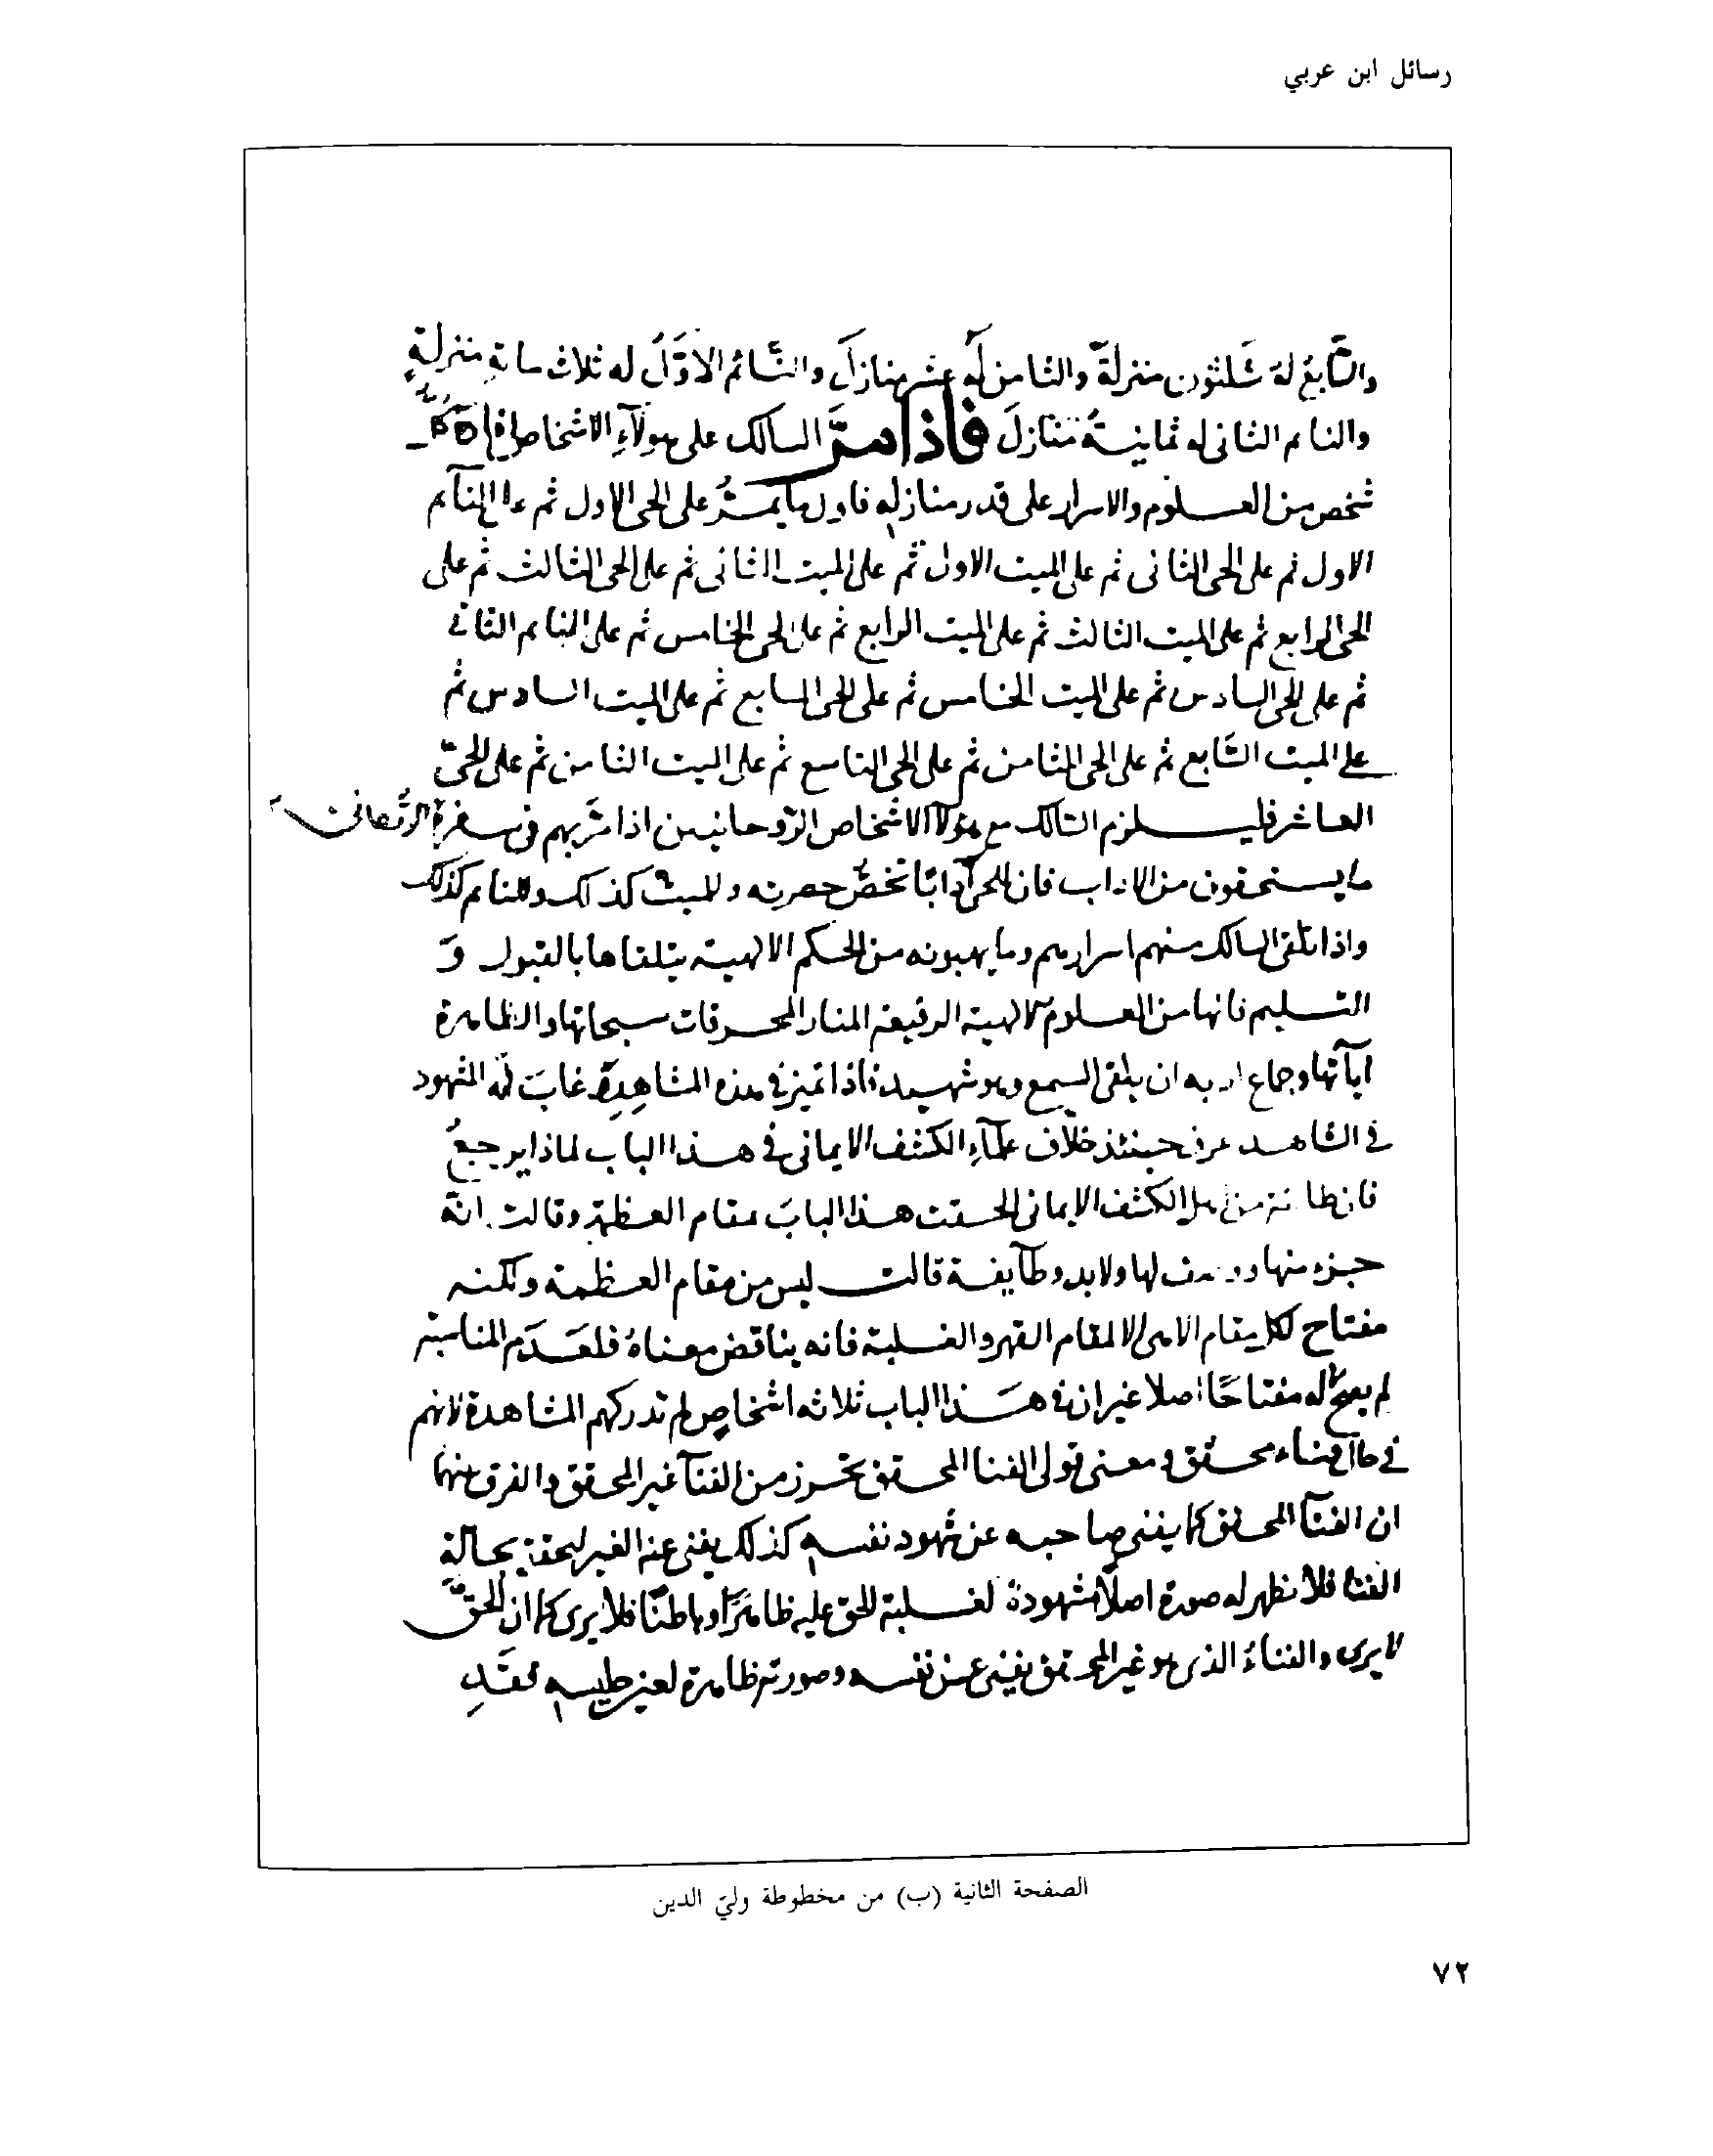 رسائل ابن عربي
والسَّابعُ لهُ ثَلثون منزلةً والثامن لَه عشر منازلَ والنَّائم الاوَّلُ له ثلاث مائةِ منزلةٍ
والنائم الثانى له ثمانيـةُ منازلَ فاذا مرَّ السالك على هولآءِ الاشخاص
شخص من العـلوم والاسرار على قدر منازله فاول ما يمـرُّ على الحى الاول ثم على النآئم
الاول ثم على الحى الثانى ثم على الميت الاول ثم على الميت الثانى ثم على الحى الثالث ثم على
الحى الرابع ثم على الميت الثالث ثم على الميت الرابع ثم على الحى الخامس ثم على النائم الثانى
ثم على الحى السادس ثم على الميت الخامس ثم على الحى السابع ثم على الميت السادس ثم
على الميت السَّابع ثم على الحى الثامن ثم على الحى التاسع ثم على الميت الثامن ثم على الحىّ
العاشر فليـلزم السَّالك مع هولآء الاشخاص الرّوحانيـين اذا مرَّ بهم فى سفره
ما يستحقون من الاداب فان للحى آدابًا تخصُّ حضرته وللميت كذلك وللنائم كذلك
واذا تلقى السالك منهم اسرارهم وما يهبونه من الحكم الالهية يتلقاها بالقبول وَ
التسـليم فانها من العـلوم الالهية الرفيعة المنار المحـرقات سبحاتها والظاهرة
آياتها وجماع اد به ان يلقى السمع وهو شهيـد فاذا تميز فى هذه المشاهِدةِ غابَ لَه المشهود
فى الشاهـد عرف حينئذ خلاف علمآءِ الكشف الايمانى فى هـذا الباب لماذا يرجعُ
فان طائفة من اهل الكشف الايمانى الحـقت هـذا البابَ بمقام العـظمة وقالت انّه
جـزء منها لها ولا بد وطآيفـة قالت ليس من مقام العـظمة ولكنه
مفتاح لكل مقام الالمقام القهر والغـلبة فانه يناقض معناهُ فلعَـدَم المناسبة
لم يصحّ له مفتاحًا اصلا غير ان فى هـذا الباب ثلاثه اشخاصٍ لم تدركهم المشاهدة لانهم
فى فناء محـقق ومعـنى قولى الفنا المحـقق تحـرز من الفنآ غير المحقق والفرق بينهما
ان الفنآ المحقق كما يفنى صاحبـه عن شهود نفسـه كذلك يفنى عنه الغير لتحققه بحـالةِ
الفنا فلا تظهر له صورة اصلاً مشهودة لغـلبة الحق عليه ظاهرًا وباطنًا فلا يرى كما ان الحقَّ
لا يرى والفناءُ الذى هو غير المحقق يفنى عـن نفسـه وصورته ظاهرة لعين جليسـه فَـقَـدِ
الصفحة الثانية (ب) من مخطوطة وليّ الدين
٧٢